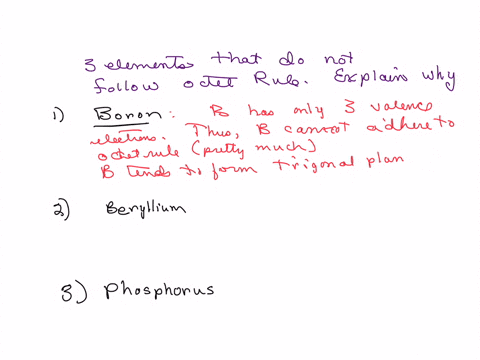 3 elements that do not
follow octet Rule. Explain why
1) Boron: B has only 3 valence
electrons. Thus, B cannot adhere to
octet rule (pretty much)
B tends to form trigonal plan
2) Beryllium
3) Phosphorus